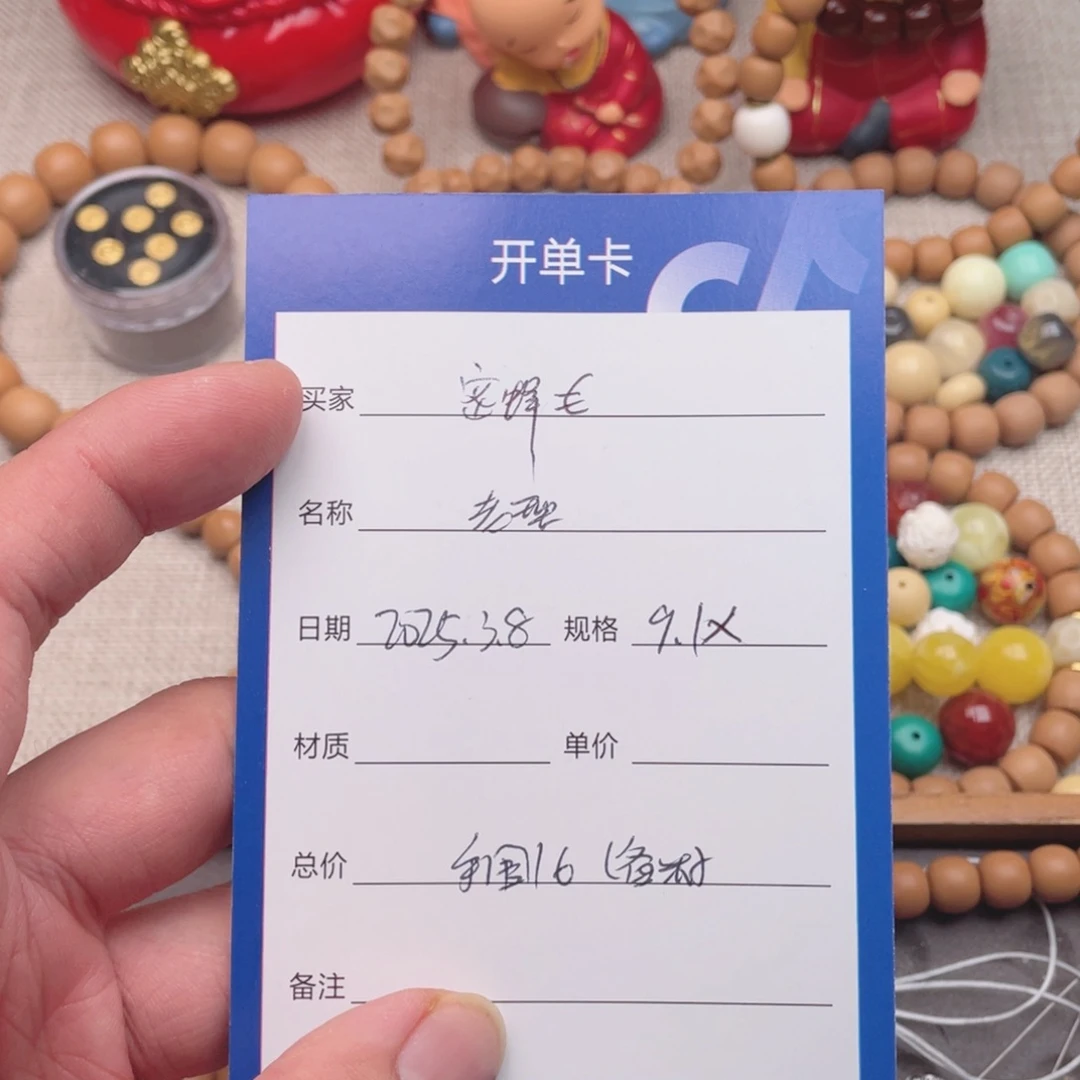 开单卡
买家 蜜蜂毛
名称 老型
日期 2025.3.8 规格 9.1X
材质 单价
总价 手围16
备注